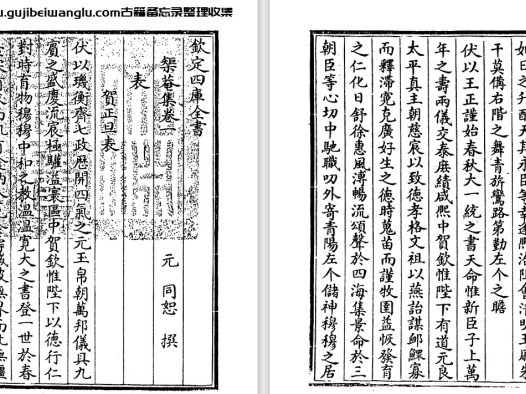 u.gujibeiwanglu.com古籍备忘录整理收集
欽定四庫全書
榘菴集卷一
元 同恕 撰
表
賀正旦表
伏以璣衡齊七政厯開四氣之元玉帛朝萬邦儀具九
賓之盛慶流宸極驩溢寰區中賀欽惟陛下以德行仁
對時育物穆穆中和之教溫溫寬大之書登一世於春
如日之升配天其
干莫儔右階之舞青旂鸞路第勤左个之瞻
伏以王正謹始春秋大一統之書天命惟新臣子上萬
年之壽兩儀交泰庶績咸熙中賀欽惟陛下有道元良
太平真主朝慈宸以致德孝格文祖以燕詒謀卹鰥寡
而釋滯寃克廣好生之德時蒐苗而謹牧圉益恢發育
之仁化日舒徐惠風溥暢流頌聲於四海集景命於三
朝臣等心切中馳職叨外寄青陽左个儲神穆穆之居